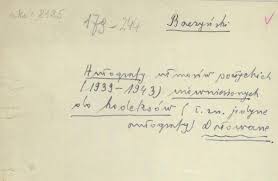 179-244
Baczyński
Autografy utworów poetyckich
(1939-1943) niewniesionych
do kodeksów (t.zn. jedyne
autografy) darowane